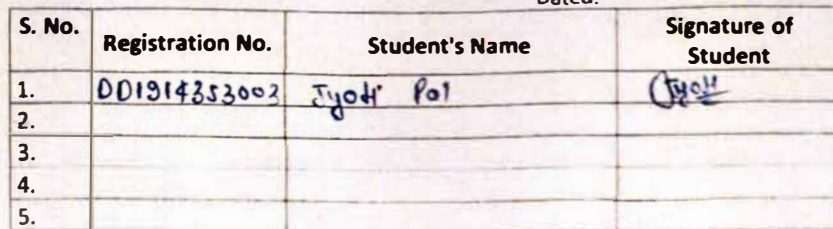 Dated:
S. No. Registration No. Student's Name Signature of Student
1. DD1914353002 Jyoti Pal Jyoti
2.
3.
4.
5.